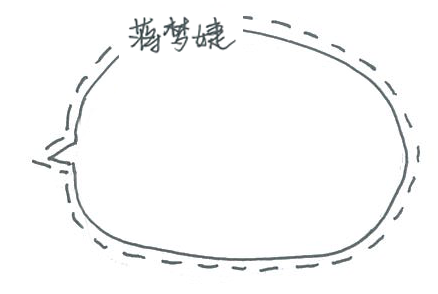 蒋梦婕